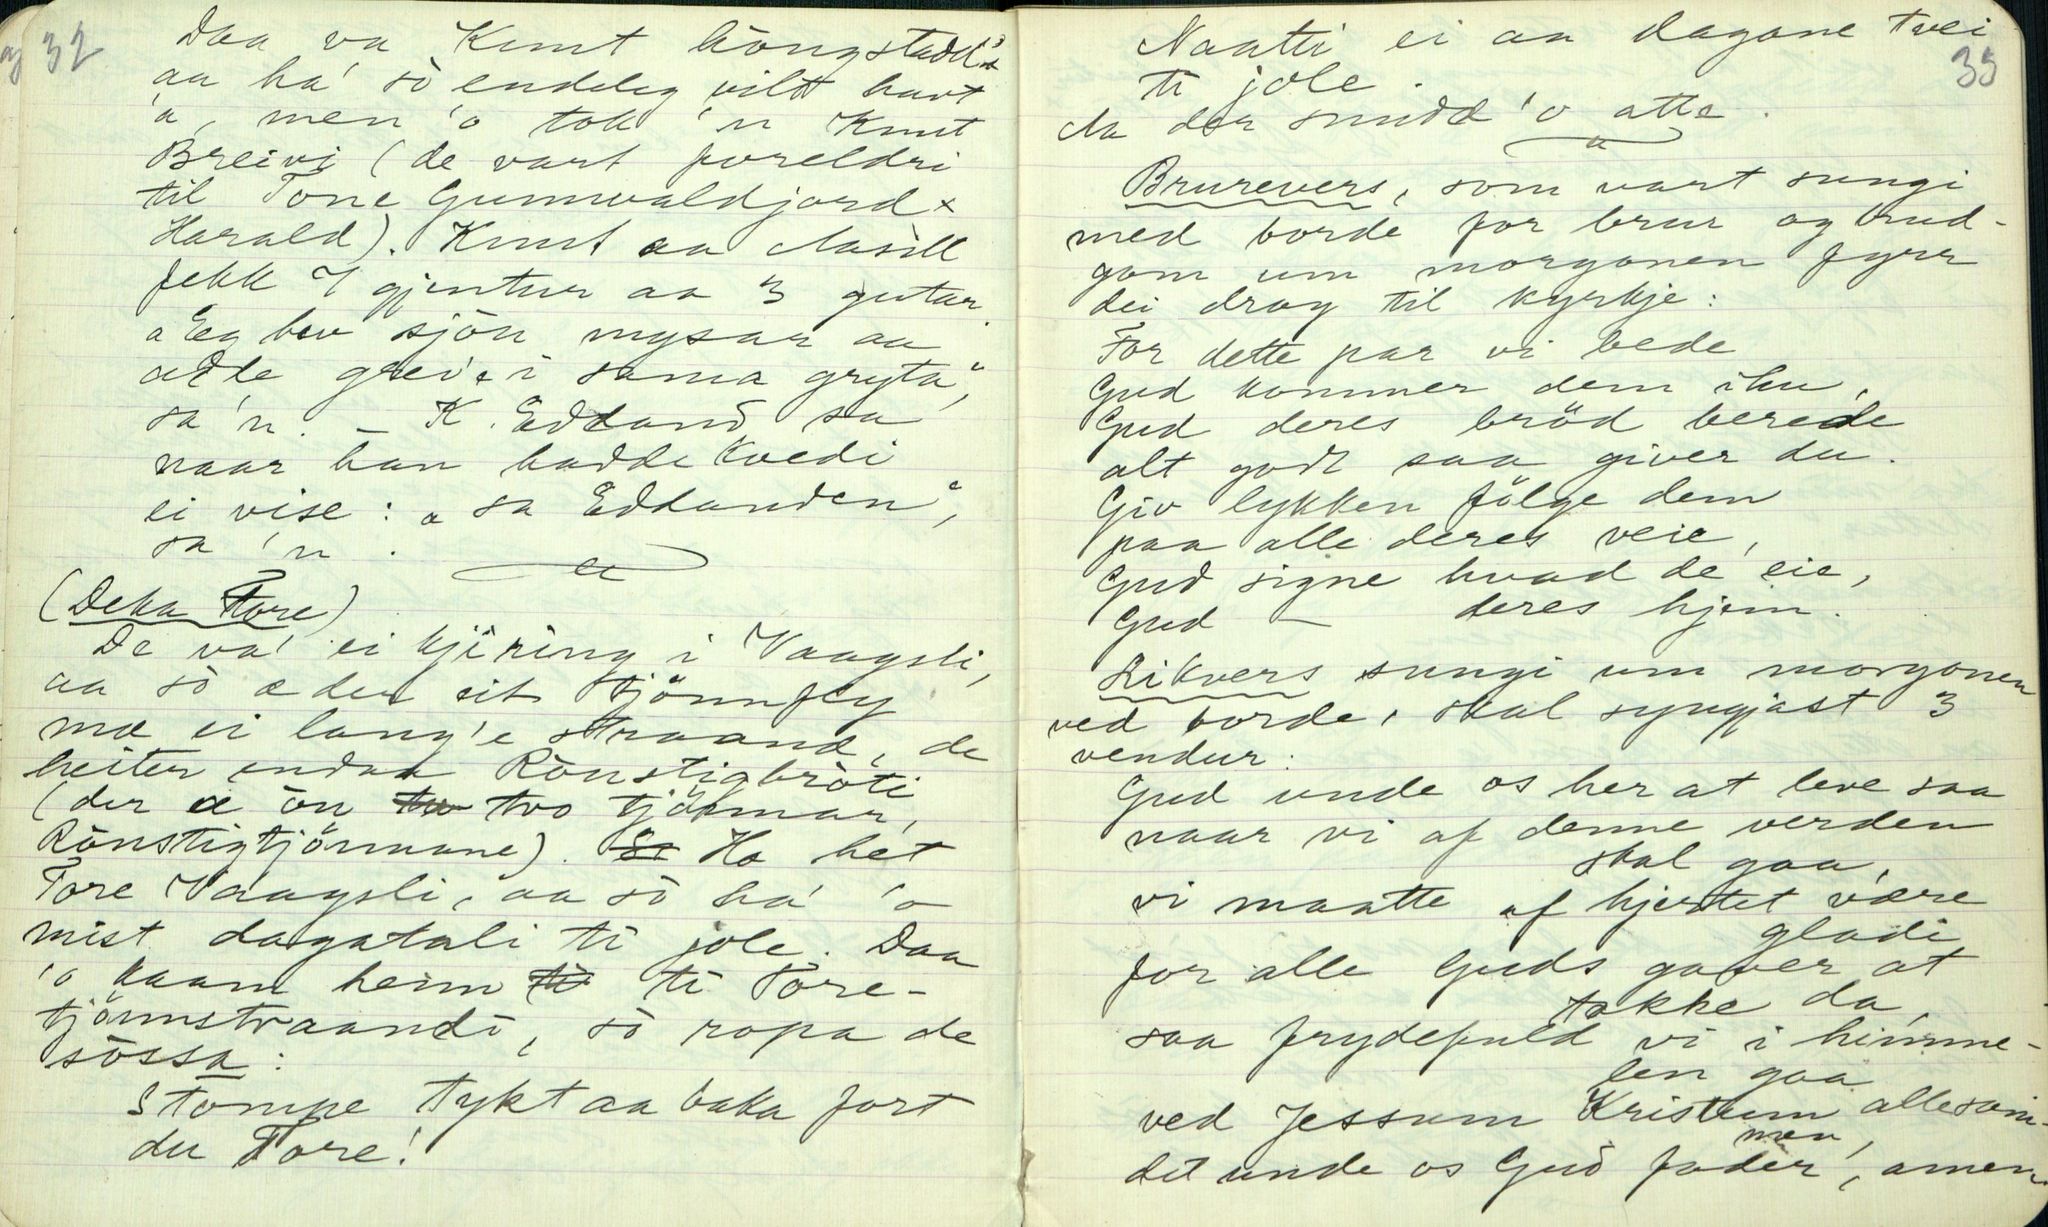 32
Daa va Knut Höngstadd'
aa ha' sò endeleg vilt havt
'a, men 'o tok 'n Knut
Breivi (de vart foreldri
til Tone Gunnvaldjord +
Harald). Knut aa Aasill
fekk 7 gjentur aa 3 gutar.
„Eg hev sjòn mysar aa
adle grei'e i sama gryta",
sa 'n. – K. Eddand sa
naar han hadde kvedi
ei vise: „sa Eddanden",
sa 'n.
(Deka Tore)
De va' ei kjering i Vaagsli,
aa sò æ der eit Tjönnfly
mæ ei lang'e straand, de
heiter endaa Rònstigbròti
(der æ òn two tjönnar,
Rònstigtjönnane). Ho het
Tore Vaagsli, aa sò ha' 'o
mist dagatali ti jole. Daa
'o kaam heim ti Tore-
tjönnstraandi, sò ropa de
sòssa:
Stompe tykt aa baka fort
du Tore!
33
Naatti ei aa dagane tvei
ti jole.
Aa der snudd 'o atte.
Brurevers, som vart sungi
med borde for brur og brud-
gom um morgonen fyrr
dei drog til kyrkje:
For dette par vi bede
Gud kommer dem ihu,
Gud deres bröd berede
alt godt saa giver du.
Giv lykken fölge dem
paa alle deres veie,
Gud signe hvad de eie,
Gud – deres hjem.
Likvers sungi um morgonen
ved borde, skal syngjast 3
vendur:
Gud unde os her at leve saa
naar vi af denne verden
skal gaa,
vi maatte af hjertet være
gladi
for alle Guds gaver at
takke da,
saa frydefuld vi i himme-
len gaa
ved Jessum Kristum allesam-
men,
det unde os Gud fader, amen.